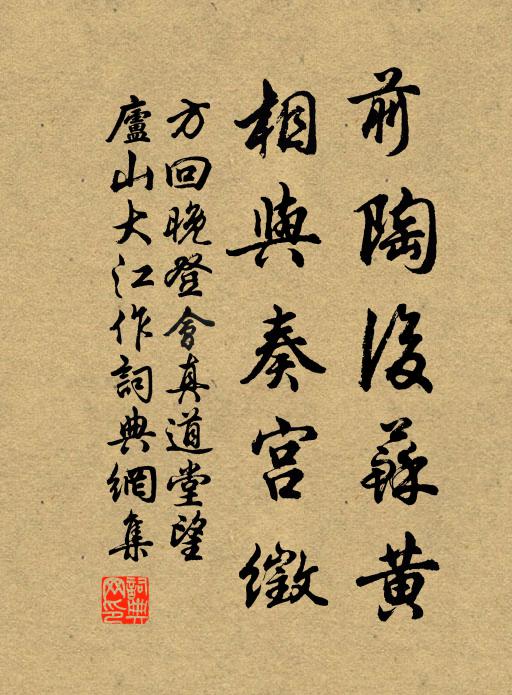 前陶後蘇黃
相與奏宮徵
方回晚登會真道堂望
廬山大江作詞典網集
詞典网印